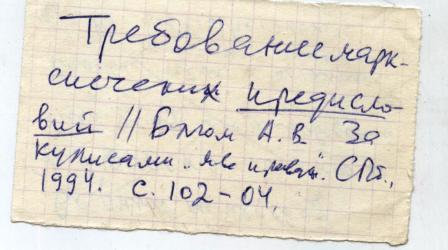 Требование марк-
систских предисло-
вий // Блюм А.В. За
кулисами „М-ва правды". СПб.,
1994. с. 102-04.